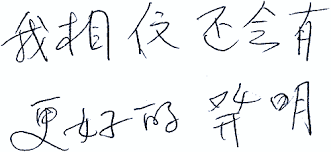 我相信还会有
更好的 明